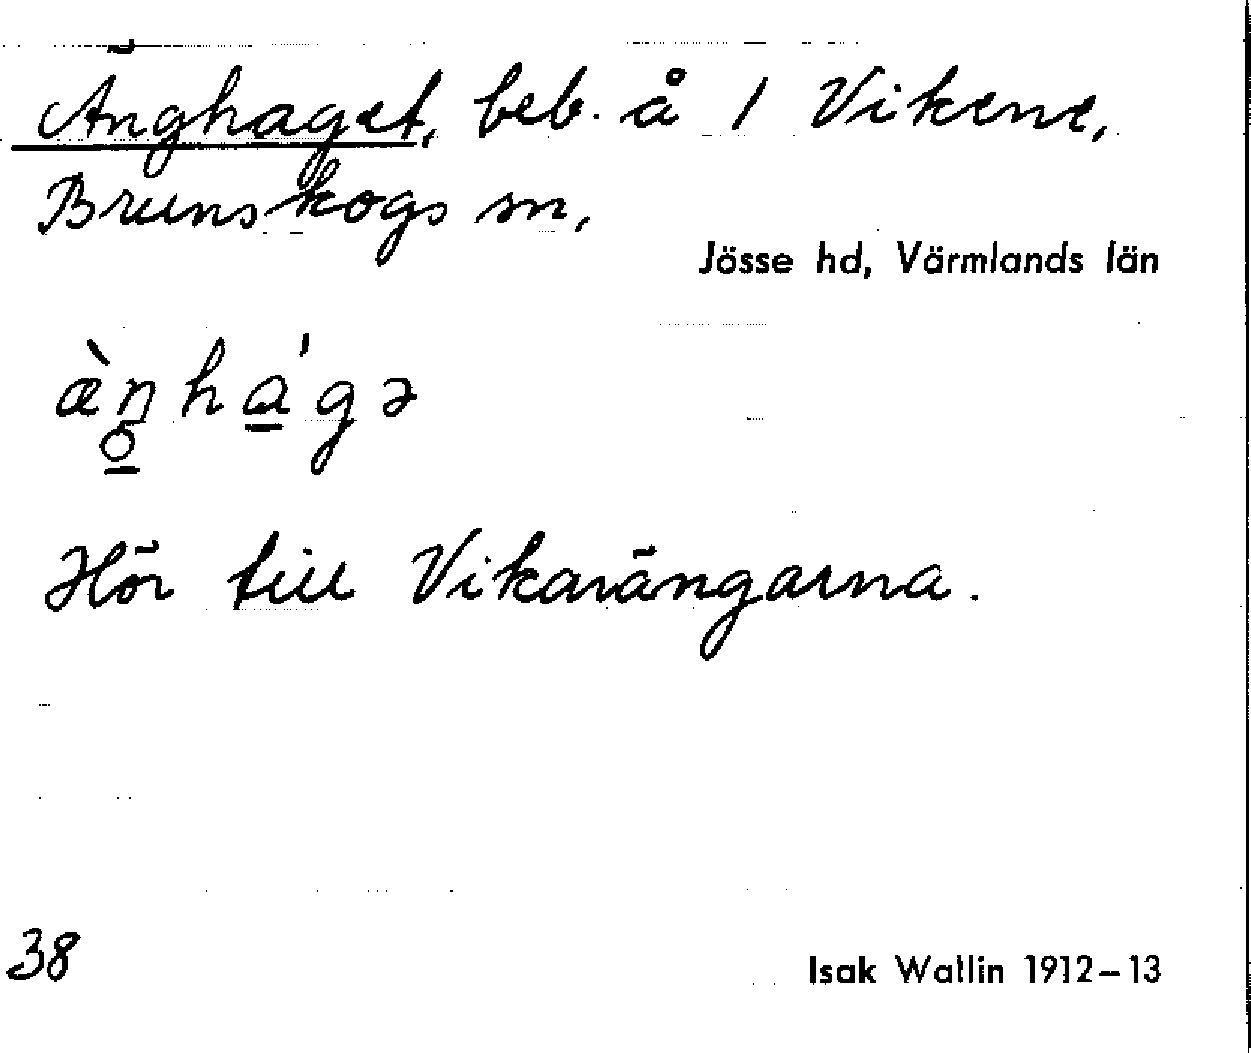 Änghaget, beb. å 1 Vikene,
Brunskogs sn,
Jösse hd, Värmlands län
æ̀n̥ha̱´gə
Hör till Vikarängarna.
38
Isak Wallin 1912–13